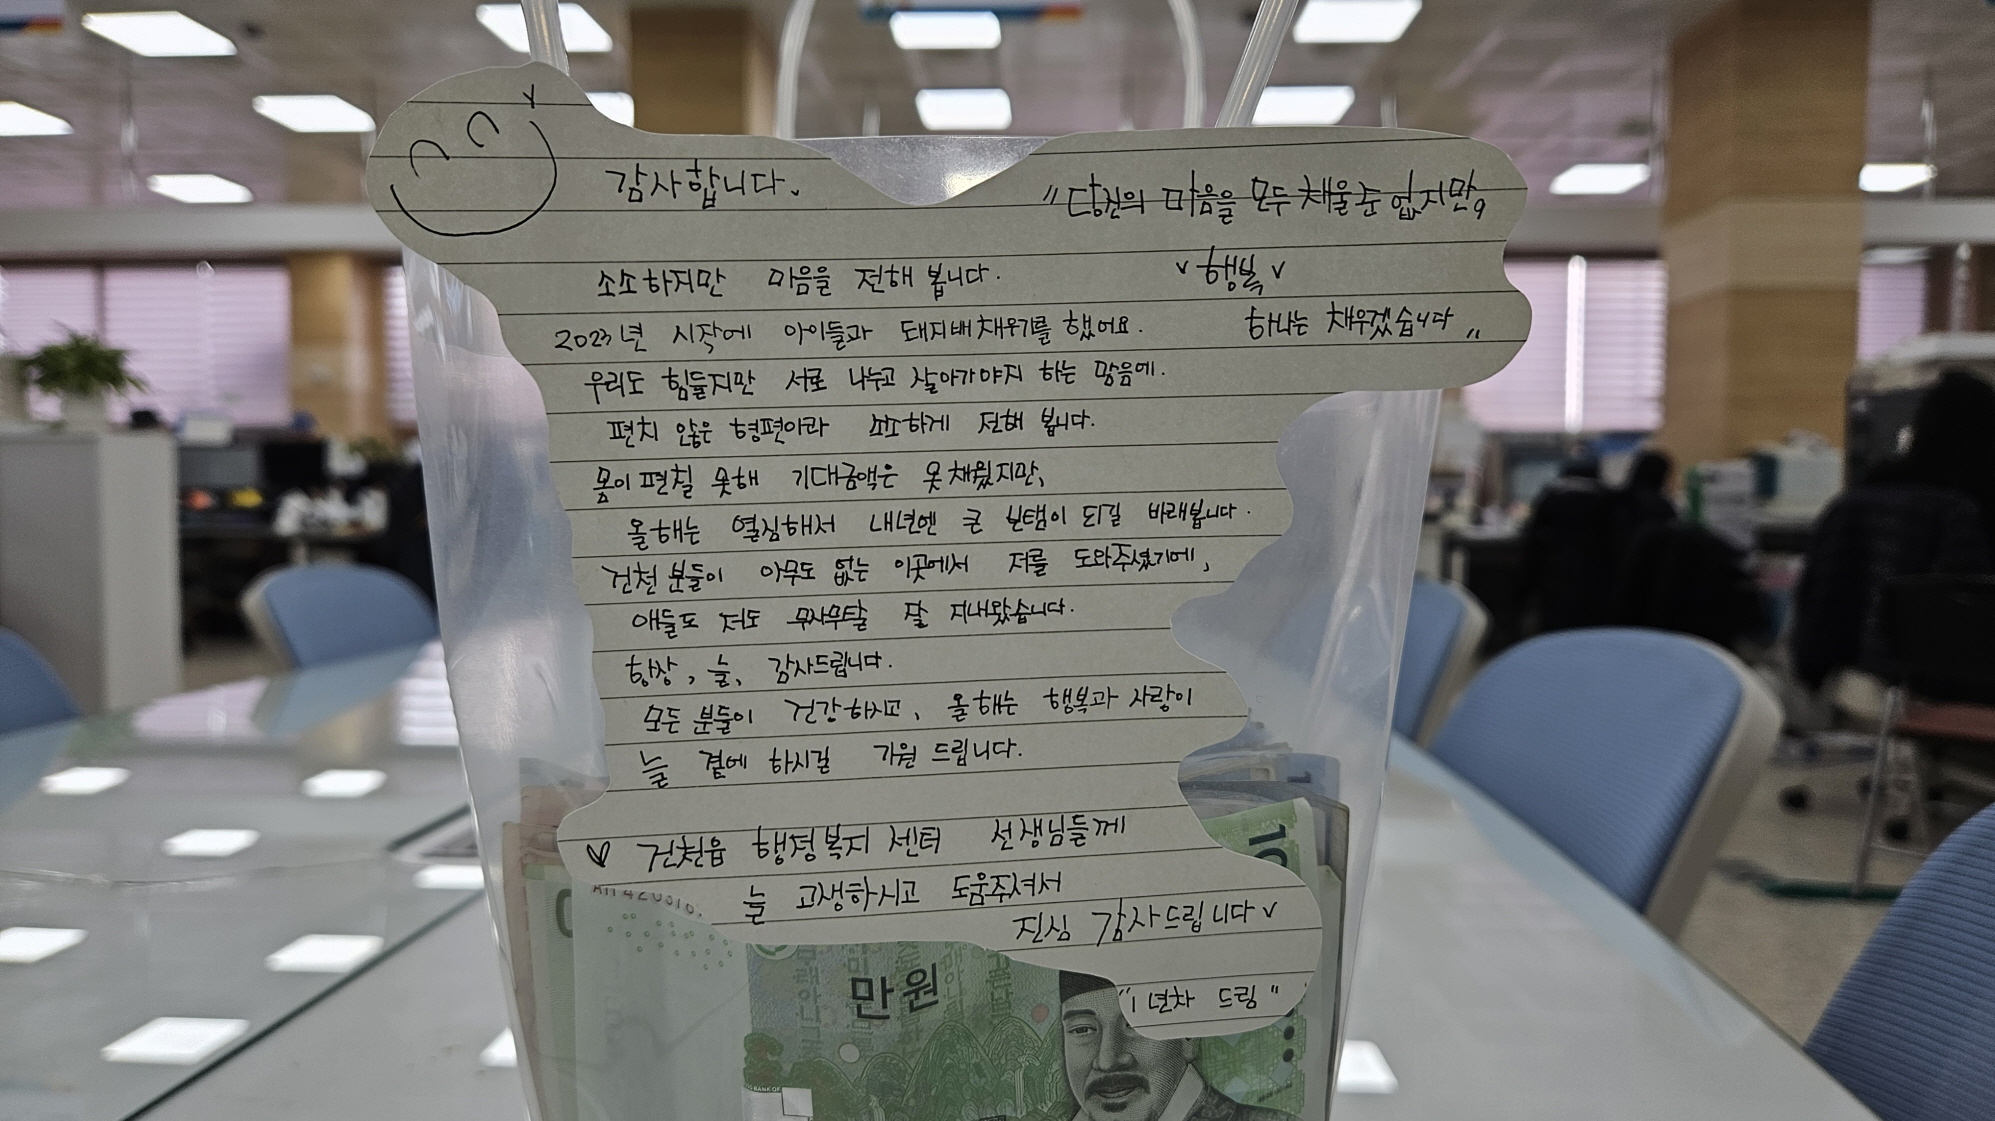 감사합니다.
"당신의 마음을 모두 채울 순 없지만,
행복
하나는 채우겠습니다"
소소하지만 마음을 전해 봅니다.
2023년 시작에 아이들과 돼지배채우기를 했어요.
우리도 힘들지만 서로 나누고 살아가야지 하는 맘음에.
편치 않은 형편이라 소소하게 전해 봅니다.
몸이 편칠 못해 기대금액은 못 채웠지만,
올해는 열심해서 내년엔 큰 보탬이 되길 바래봅니다.
건천 분들이 아무도 없는 이곳에서 저를 도와주셨기에,
애들도 저도 무사무탈 잘 지내왔습니다.
항상, 늘, 감사드립니다.
모든 분들이 건강하시고, 올해는 행복과 사랑이
늘 곁에 하시길 기원 드립니다.
♡ 건천읍 행정복지 센터 선생님들께
늘 고생하시고 도움주셔서
진심 감사드립니다
"1년차 드림"
만원